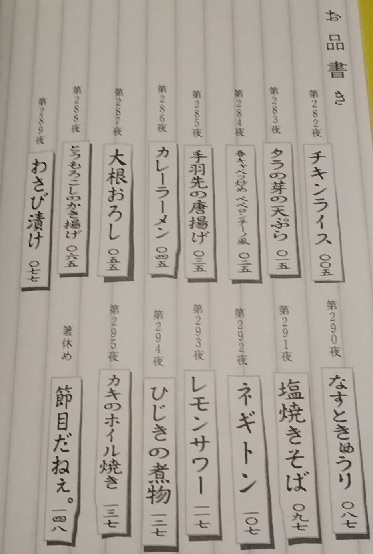 お品書き
第282夜
チキンライス 〇〇五
第283夜
タラの芽の天ぷら 〇一五
第284夜
春キャベツ炒め ペペロンチーノ風 〇二五
第285夜
手羽先の唐揚げ 〇三五
第286夜
カレーラーメン 〇四五
第287夜
大根おろし 〇五五
第288夜
とうもろこしのかき揚げ 〇六五
第289夜
わさび漬け 〇七七
第290夜
なすときゅうり 〇八七
第291夜
塩焼きそば 〇九七
第292夜
ネギトン 一〇七
第293夜
レモンサワー 一一七
第294夜
ひじきの煮物 一二七
第295夜
カキのホイル焼き 一三七
箸休め
節目だねぇ。 一四八